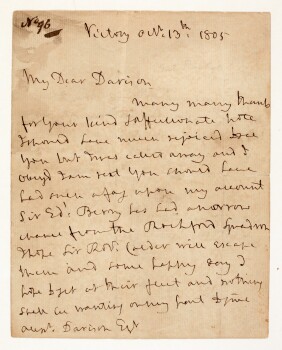 No 96
Victory Oct: 13th 1805
My Dear Davison
many many thanks
for your kind & affectionate note
I should have much rejoiced to see
you but I was called away and I
obeyed I am you should have
had such a upon my account
Sir Edd. Berry has had a narrow
chance from the Rochford Squadron
I hope Sir Robt. Calder will escape
them and some happy day I
hope to get at their fleet and nothing
shall be wanting on my part to
Davison Esqr